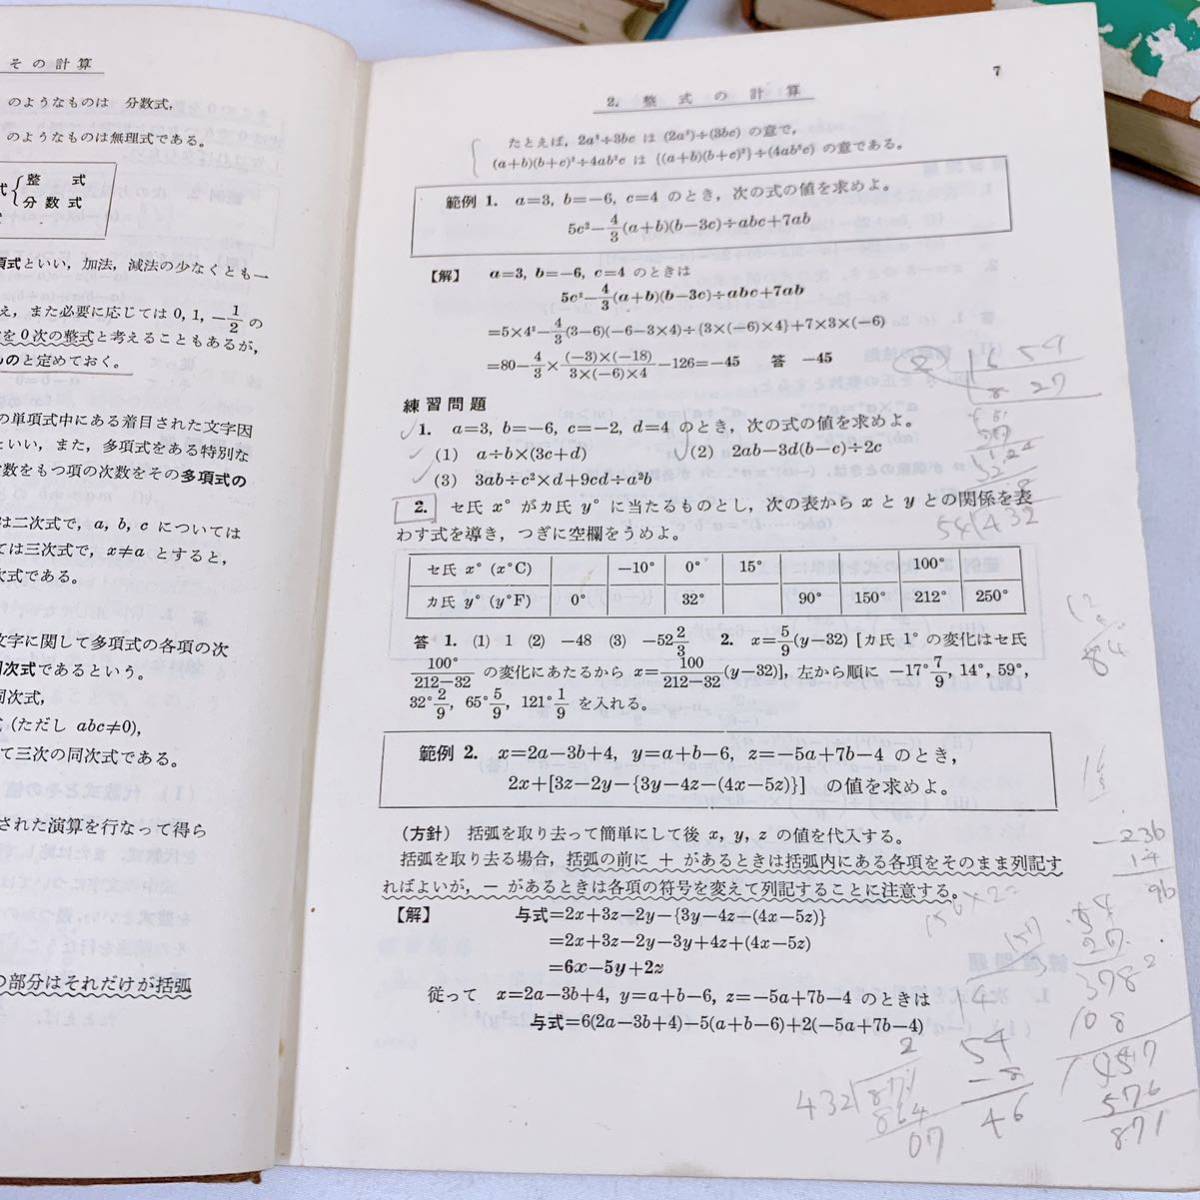 その計算
のようなものは 分数式,
のようなものは無理式である。
式{整 式
分数式
式といい, 加法, 減法の少なくとも一
え, また必要に応じては 0, 1, −1/2 の
を0次の整式と考えることもあるが,
ものと定めておく。
の単項式中にある着目された文字因
といい, また, 多項式をある特別な
数をもつ項の次数をその多項式の
は二次式で, a, b, c については
ては三次式で, x≠a とすると,
次式である。
文字に関して多項式の各項の次
同次式であるという。
同次式,
(ただし abc≠0),
て三次の同次式である。
された演算を行なって得ら
の部分はそれだけが括弧
7
2. 整式の計算
たとえば, 2a⁴÷3bc は (2a⁴)÷(3bc) の意で,
(a+b)(b+c)²÷4ab²c は {(a+b)(b+c)²}÷(4ab²c) の意である。
範例 1. a=3, b=−6, c=4 のとき, 次の式の値を求めよ。
5c²−4/3(a+b)(b−3c)÷abc+7ab
【解】 a=3, b=−6, c=4 のときは
5c²−4/3(a+b)(b−3c)÷abc+7ab
=5×4²−4/3(3−6)(−6−3×4)÷{3×(−6)×4}+7×3×(−6)
=80−4/3×(−3)×(−18)/3×(−6)×4−126=−45 答 −45
練習問題
1. a=3, b=−6, c=−2, d=4 のとき, 次の式の値を求めよ。
(1) a÷b×(3c+d) (2) 2ab−3d(b−c)÷2c
(3) 3ab÷c²×d+9cd÷a²b
2. セ氏 x° がカ氏 y° に当たるものとし, 次の表から x と y との関係を表
わす式を導き, つぎに空欄をうめよ。
セ氏 x° (x°C) −10° 0° 15° 100°
カ氏 y° (y°F) 0° 32° 90° 150° 212° 250°
答 1. (1) 1 (2) −48 (3) −52 2/3 2. x=5/9(y−32) [カ氏 1° の変化はセ氏
100°/212−32 の変化にあたるから x=100/212−32(y−32)], 左から順に −17°7/9, 14°, 59°,
32°2/9, 65°5/9, 121°1/9 を入れる。
範例 2. x=2a−3b+4, y=a+b−6, z=−5a+7b−4 のとき,
2x+[3z−2y−{3y−4z−(4x−5z)}] の値を求めよ。
(方針) 括弧を取り去って簡単にして後 x, y, z の値を代入する。
括弧を取り去る場合, 括弧の前に + があるときは括弧内にある各項をそのまま列記す
ればよいが, − があるときは各項の符号を変えて列記することに注意する。
【解】 与式=2x+3z−2y−{3y−4z−(4x−5z)}
=2x+3z−2y−3y+4z+(4x−5z)
=6x−5y+2z
従って x=2a−3b+4, y=a+b−6, z=−5a+7b−4 のときは
与式=6(2a−3b+4)−5(a+b−6)+2(−5a+7b−4)
54
27
54 432
84
236
14
96
54
27
398
108
457
576
871
54
−8
46
2
432 871
864
07